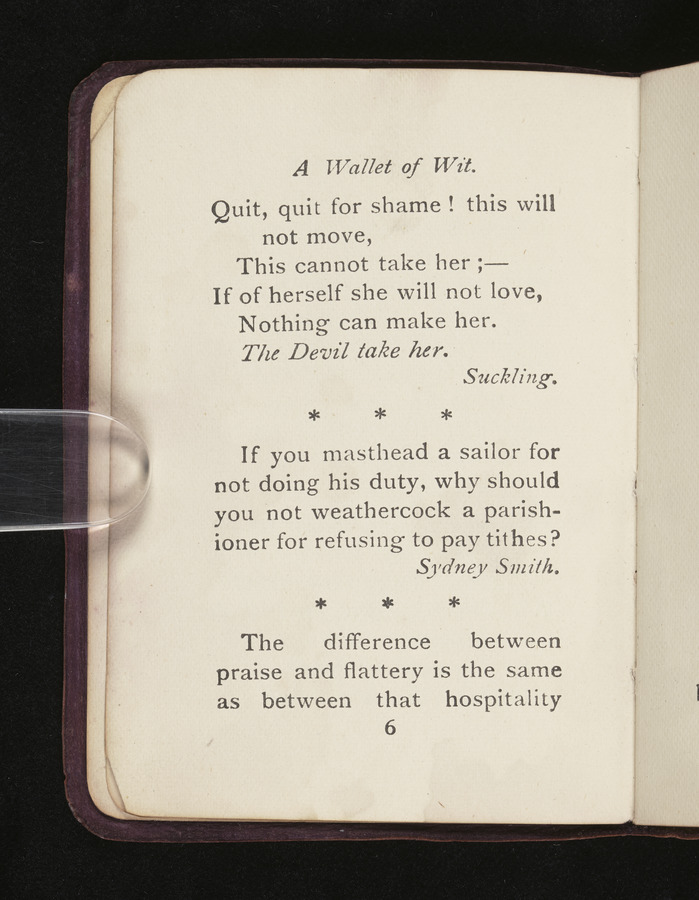 A Wallet of Wit.
Quit, quit for shame ! this will
not move,
This cannot take her ;—
If of herself she will not love,
Nothing can make her.
The Devil take her.
Suckling.
* * *
If you masthead a sailor for
not doing his duty, why should
you not weathercock a parish-
ioner for refusing to pay tithes?
Sydney Smith.
* * *
The difference between
praise and flattery is the same
as between that hospitality
6